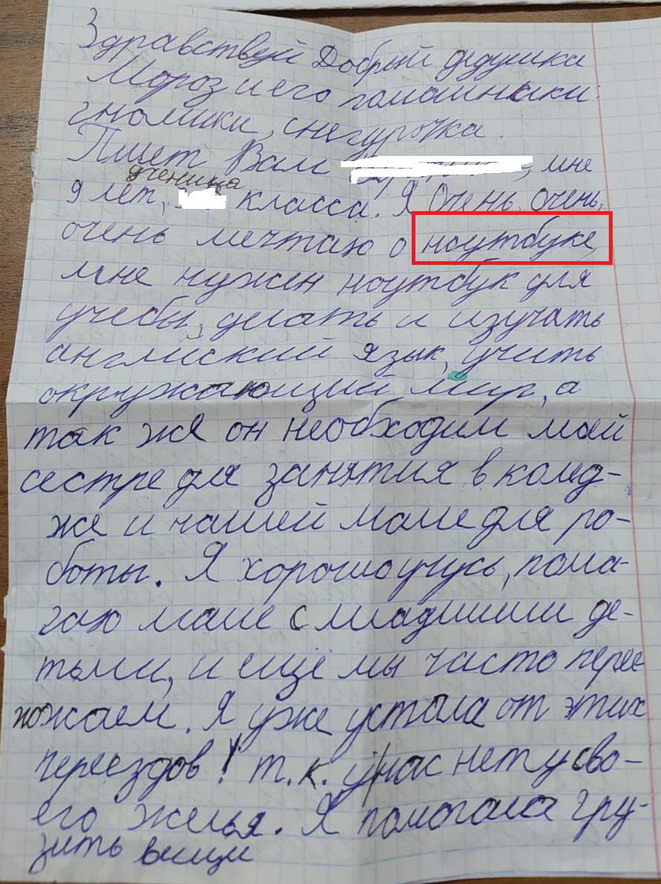 Здравствуй Добрый дедушка
Мороз и его помошники:
гномики, снегурочка.
Пишет Вам , мне
ученица
9 лет, класса. Я очень, очень,
очень мечтаю о ноутбуке,
мне нужен ноутбук для
учебы, делать и изучать
английский язык, учить
окружающий мир, а
так же он необходим моей
сестре для занятия в колед-
же и нашей маме для ро-
боты. Я хорошо учусь, пома-
гаю маме с младшими де-
тьми, и ещё мы часто перее
жожаем. Я уже устала от этих
переездов! т.к. у нас нету сво-
его желья. Я помогала гру-
зить вещи